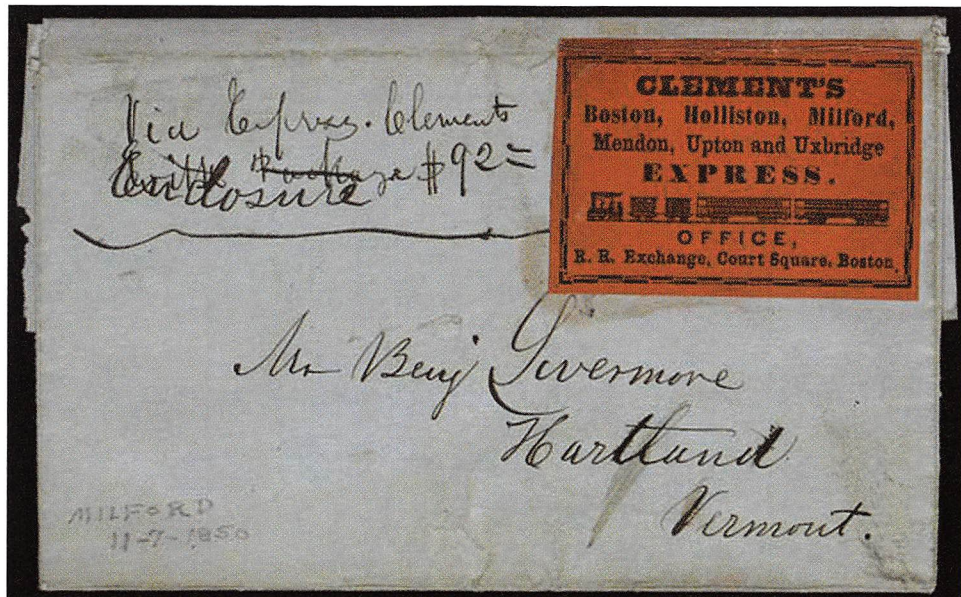 Via Express. Clements
Enclosure $92=
CLEMENT'S
Boston, Holliston, Milford,
Mendon, Upton and Uxbridge
EXPRESS.
OFFICE,
R. R. Exchange, Court Square, Boston.
Mr Benj Livermore
Hartland
Vermont.
MILFORD
11-7-1850